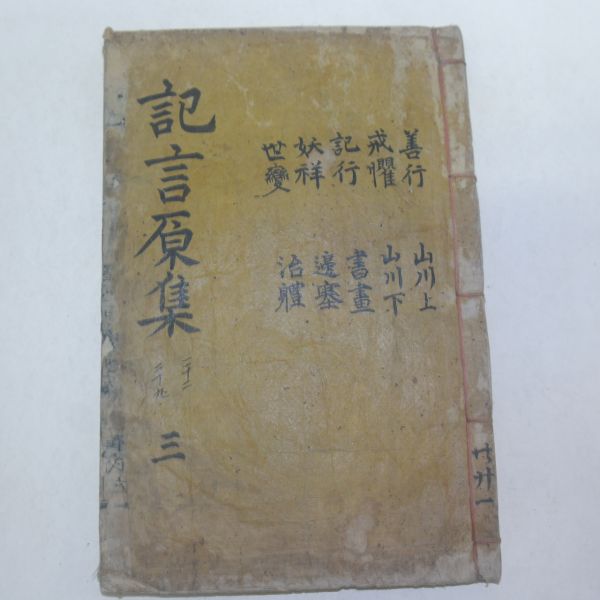 善行
戒懼
記行
妖祥
世變
山川上
山川下
書畫
邊塞
治體
記言原集
三
二十二
二十九
共卄一